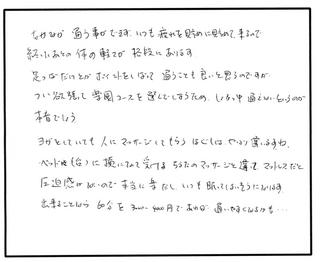 なかなか 通う事ができず、いつも 疲れを貯めに貯めて 来るので
終わったあとの 体の軽さが 格段にあります
足つぼだけとか ポイントをしぼって 通うことも 良いと思うのですが
つい 欲張って 全国コースを 選んでしまうため、しょっ中 通えないというのが
本音でしょう
ヨガをしていても 人に マッサージしてもらう はやはり 違いますね。
ベッド(台)に 横になって受ける マッサージと違って マットレスだと
圧迫感がないので 本当に 楽だし、いつも 眠ってしまいそうになります
出来ることなら 60分を 3000~4000円であれば 通いやすくなるかも…